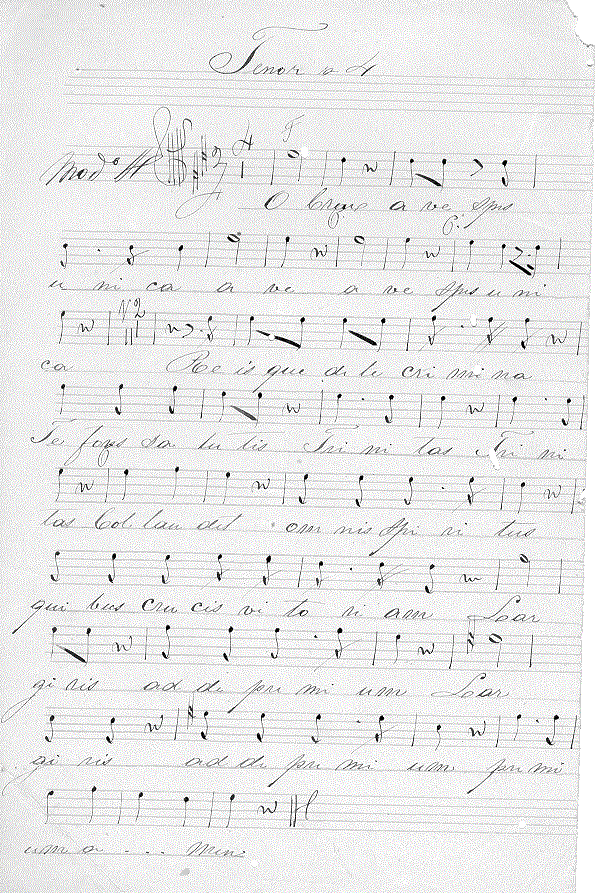 Tenor a 4
Modº
O Crus a ve spes
u ni ca a ve a ve spes u ni
ca Re is que de le cri mi na
Te fons sa lu tis Tri ni tas Tri ni
tas Col lau det om nis spi ri tus
qui bus cru cis vi to ri am Lar
gi ris ad de pre mi um Lar
gi ris ad de pre mi um pre mi
um a . . . men